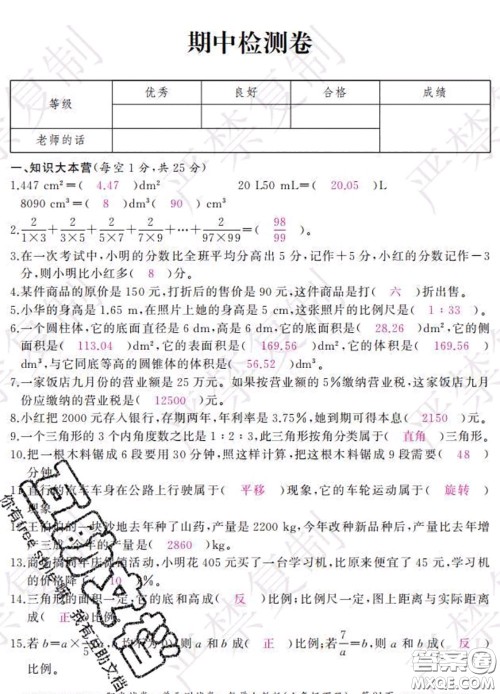 期中检测卷
等级 优秀 良好 合格 成绩
老师的话
一、知识大本营(每空1分,共25分)
1.447 cm²=( 4.47 )dm² 20 L50 mL=( 20.05 )L
8090 cm³=( 8 )dm³( 90 )cm³
2. 2/1×3+2/3×5+2/5×7+2/7×9+⋯+2/97×99=( 98/99 )。
3.在一次考试中,小明的分数比全班平均分高出5分,记作+5分,小红的分数记作-3
分,则小明比小红多( 8 )分。
4.某件商品的原价是150元,打折后的售价是90元,这件商品是打( 六 )折出售。
5.小华的身高是1.65 m,在照片上她的身高是5 cm,这张照片的比例尺是( 1∶33 )。
6.一个圆柱体,它的底面直径是6 dm,高是6 dm,它的底面积是( 28.26 )dm²,它的侧
面积是( 113.04 )dm²,它的表面积是( 169.56 )dm²,它的体积是( 169.56 )
dm³,与它同底等高的圆锥体的体积是( 56.52 )dm³。
7.一家饭店九月份的营业额是25万元。如果按营业额的5%缴纳营业税,这家饭店九月
份应缴纳的营业税是( 12500 )元。
8.小红把2000元存入银行,存期两年,年利率是3.75%,她到期可得本息( 2150 )元。
9.一个三角形的3个内角度数之比是1∶2∶3,此三角形按角分类属于( 直角 )三角形。
10.把一根木料锯成6段要用30分钟,照这样计算,把这根木料锯成9段需要( 48 )
分钟。
11.直行的汽车车身在公路上行驶属于( 平移 )现象,它的车轮运动属于( 旋转 )
现象。
12.王伯伯的一块沙地去年种了山药,产量是2200 kg,今年改种新品种后,产量比去年增
三成,今年的产量是( 2860 )kg。
13.商场搞周年庆 活动,小明花405元买了一台学习机,比原来便宜了45元,学习机
的价格降了( 10 )%。
14.三角形的面积一定,它的底和高成( 反 )比例;比例尺一定,图上距离与实际距离
成( 正 )比例。
15.若a=b× 则a和b成( 正 )比例;若7/a=b,则a和b成( 反 )
比例。
严禁复制
你有free style吗
我有自助文档
答案圈
MXQE.COM